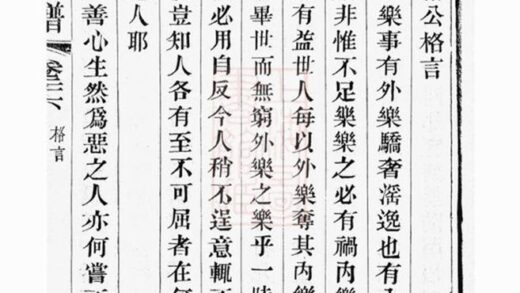 公格言
樂事有外樂驕奢滛逸也有
非惟不足樂樂之必有禍內樂
有益世人每以外樂奪其內樂
畢世而無窮外樂之樂乎一
必用自反今人稍不逞意輒
豈知人各有至不可屈者在
人耶
善心生然爲惡之人亦何嘗
譜 卷 格言